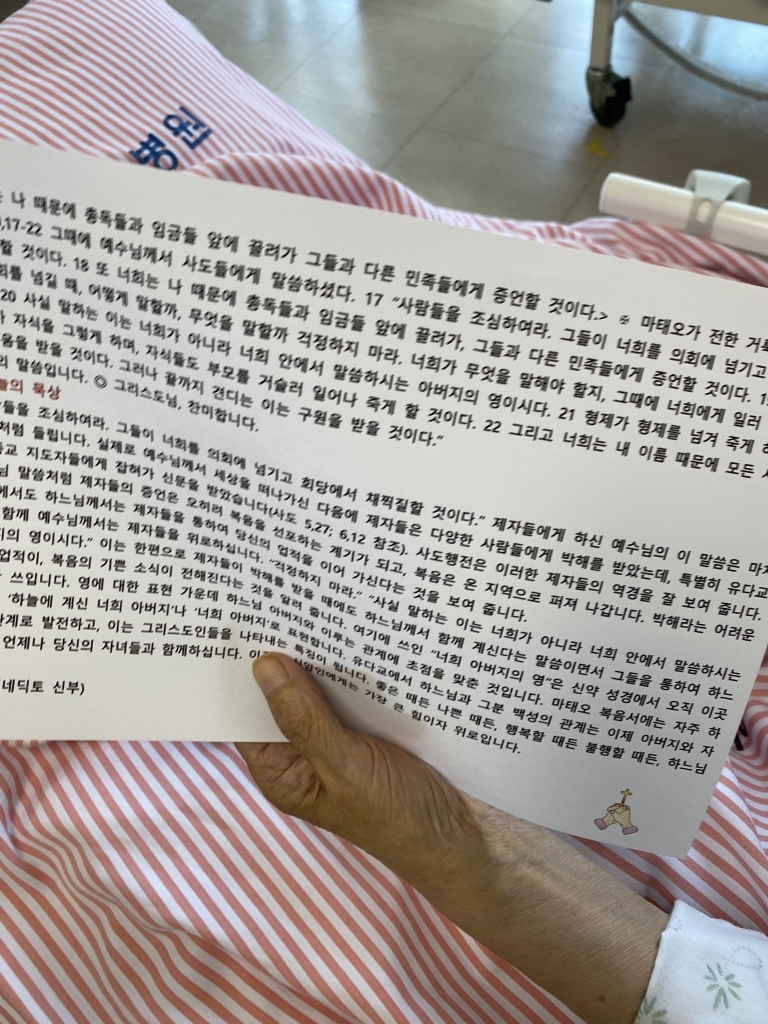 병원
나 때문에 총독들과 임금들 앞에 끌려가 그들과 다른 민족들에게 증언할 것이다.> ※ 마태오가 전한 거룩
,17-22 그때에 예수님께서 사도들에게 말씀하셨다. 17 “사람들을 조심하여라. 그들이 너희를 의회에 넘기고
할 것이다. 18 또 너희는 나 때문에 총독들과 임금들 앞에 끌려가, 그들과 다른 민족들에게 증언할 것이다. 1
희를 넘길 때, 어떻게 말할까, 무엇을 말할까 걱정하지 마라. 너희가 무엇을 말해야 할지, 그때에 너희에게 일러
20 사실 말하는 이는 너희가 아니라 너희 안에서 말씀하시는 아버지의 영이시다. 21 형제가 형제를 넘겨 죽게 하
자식을 그렇게 하며, 자식들도 부모를 거슬러 일어나 죽게 할 것이다. 22 그리고 너희는 내 이름 때문에 모든 사
움을 받을 것이다. 그러나 끝까지 견디는 이는 구원을 받을 것이다.”
의 말씀입니다. ◎ 그리스도님, 찬미합니다.
들의 묵상
들을 조심하여라. 그들이 너희를 의회에 넘기고 회당에서 채찍질할 것이다.” 제자들에게 하신 예수님의 이 말씀은 마치
처럼 들립니다. 실제로 예수님께서 세상을 떠나가신 다음에 제자들은 다양한 사람들에게 박해를 받았는데, 특별히 유다교
등교 지도자들에게 잡혀가 신문을 받았습니다(사도 5,27; 6,12 참조). 사도행전은 이러한 제자들의 역경을 잘 보여 줍니다.
님 말씀처럼 제자들의 증언은 오히려 복음을 선포하는 계기가 되고, 복음은 온 지역으로 퍼져 나갑니다. 박해라는 어려운
에서도 하느님께서는 제자들을 통하여 당신의 업적을 이어 가신다는 것을 보여 줍니다.
함께 예수님께서는 제자들을 위로하십니다. “걱정하지 마라.” “사실 말하는 이는 너희가 아니라 너희 안에서 말씀하시는
지의 영이시다.” 이는 한편으로 제자들이 박해를 받을 때에도 하느님께서 함께 계신다는 말씀이면서 그들을 통하여 하느
업적이, 복음의 기쁜 소식이 전해진다는 것을 알려 줍니다. 여기에 쓰인 “너희 아버지의 영”은 신약 성경에서 오직 이곳
쓰입니다. 영에 대한 표현 가운데 하느님 아버지와 이루는 관계에 초점을 맞춘 것입니다. 마태오 복음서에는 자주 하
‘하늘에 계신 너희 아버지’나 ‘너희 아버지’로 표현합니다. 유다교에서 하느님과 그분 백성의 관계는 이제 아버지와 자
관계로 발전하고, 이는 그리스도인들을 나타내는 특징이 됩니다. 좋은 때든 나쁜 때든, 행복할 때든 불행할 때든, 하느님
언제나 당신의 자녀들과 함께하십니다. 신앙인에게는 가장 큰 힘이자 위로입니다.
네딕토 신부)